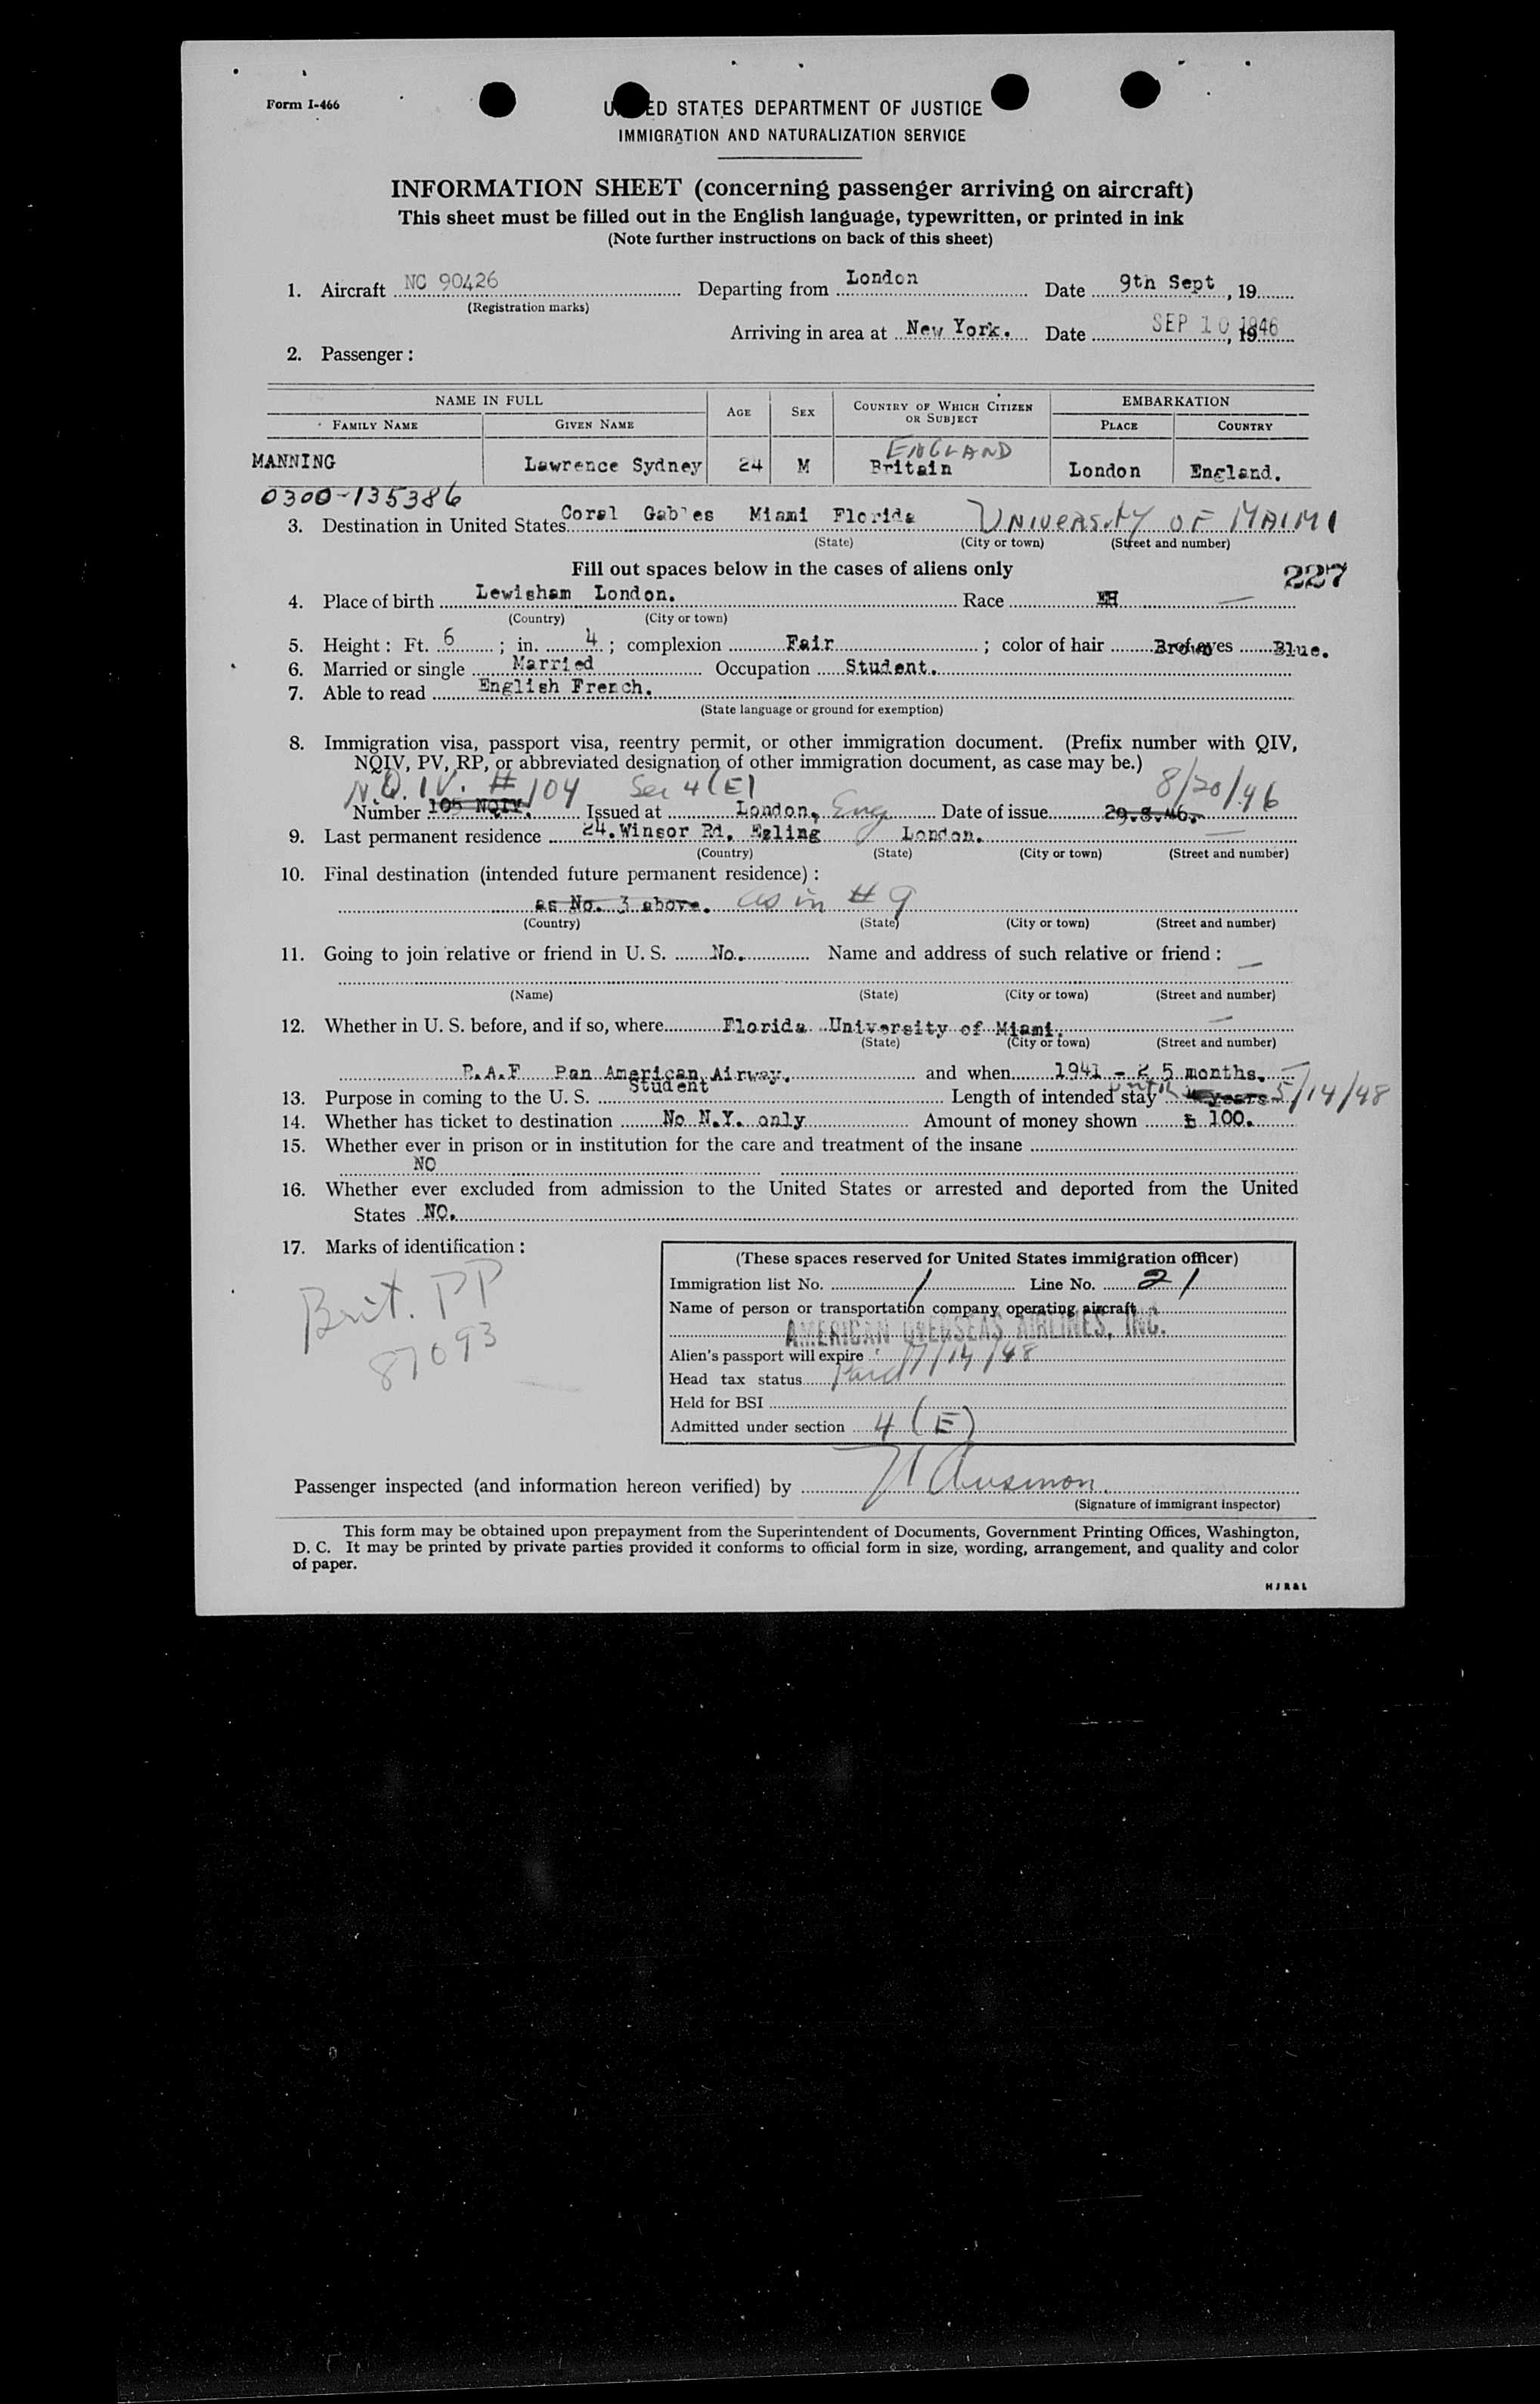 Form I-466
UNITED STATES DEPARTMENT OF JUSTICE
IMMIGRATION AND NATURALIZATION SERVICE
INFORMATION SHEET (concerning passenger arriving on aircraft)
This sheet must be filled out in the English language, typewritten, or printed in ink
(Note further instructions on back of this sheet)
1. Aircraft NC 90426 Departing from London Date 9th Sept, 19
(Registration marks)
Arriving in area at New York. Date SEP 10 1946
2. Passenger:
NAME IN FULL AGE SEX COUNTRY OF WHICH CITIZEN OR SUBJECT EMBARKATION
FAMILY NAME GIVEN NAME PLACE COUNTRY
ENGLAND
MANNING Lawrence Sydney 24 M Britain London England.
0300-135386
3. Destination in United States Coral Gables Miami Florida UNIVERSITY OF MAIMI
(State) (City or town) (Street and number)
Fill out spaces below in the cases of aliens only
227
4. Place of birth Lewisham London. Race
(Country) (City or town)
5. Height: Ft. 6; in. 4; complexion Fair; color of hair Brown eyes Blue.
6. Married or single Married Occupation Student.
7. Able to read English French.
(State language or ground for exemption)
8. Immigration visa, passport visa, reentry permit, or other immigration document. (Prefix number with QIV,
NQIV, PV, RP, or abbreviated designation of other immigration document, as case may be.)
N.Q.I.V. # 104 Sec 4(E) 8/20/46
Number 105 NQIV. Issued at London, Eng Date of issue 29.8.46.
9. Last permanent residence 24. Winsor Rd. Ealing London.
(Country) (State) (City or town) (Street and number)
10. Final destination (intended future permanent residence):
as No. 3 above. as in # 9
(Country) (State) (City or town) (Street and number)
11. Going to join relative or friend in U. S. No. Name and address of such relative or friend:
(Name) (State) (City or town) (Street and number)
12. Whether in U. S. before, and if so, where Florida University of Miami.
(State) (City or town) (Street and number)
R.A.F Pan American Airway. and when 1941 - 2 5 months.
13. Purpose in coming to the U. S. Student Length of intended stay years until 5/14/48
14. Whether has ticket to destination No N.Y. only Amount of money shown £ 100.
15. Whether ever in prison or in institution for the care and treatment of the insane
NO
16. Whether ever excluded from admission to the United States or arrested and deported from the United
States NO.
17. Marks of identification:
Brit. PP
87093
(These spaces reserved for United States immigration officer)
Immigration list No. 1 Line No. 21
Name of person or transportation company operating aircraft
AMERICAN OVERSEAS AIRLINES, INC.
Alien's passport will expire 7/14/48
Head tax status Paid
Held for BSI
Admitted under section 4 (E)
Passenger inspected (and information hereon verified) by
(Signature of immigrant inspector)
This form may be obtained upon prepayment from the Superintendent of Documents, Government Printing Offices, Washington,
D. C. It may be printed by private parties provided it conforms to official form in size, wording, arrangement, and quality and color
of paper.
HJR&L